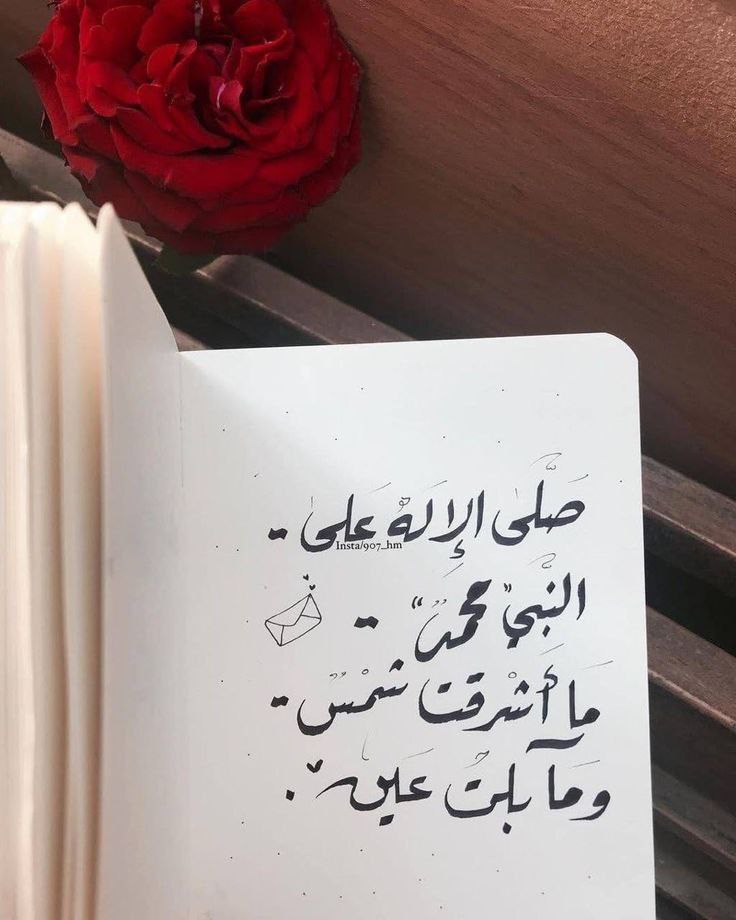 صَلَّى الإِلَهُ عَلَى -
Insta/907_hm
النَّبي "محمدٍ" -
مَا أَشْرقت شَمْسٌ -